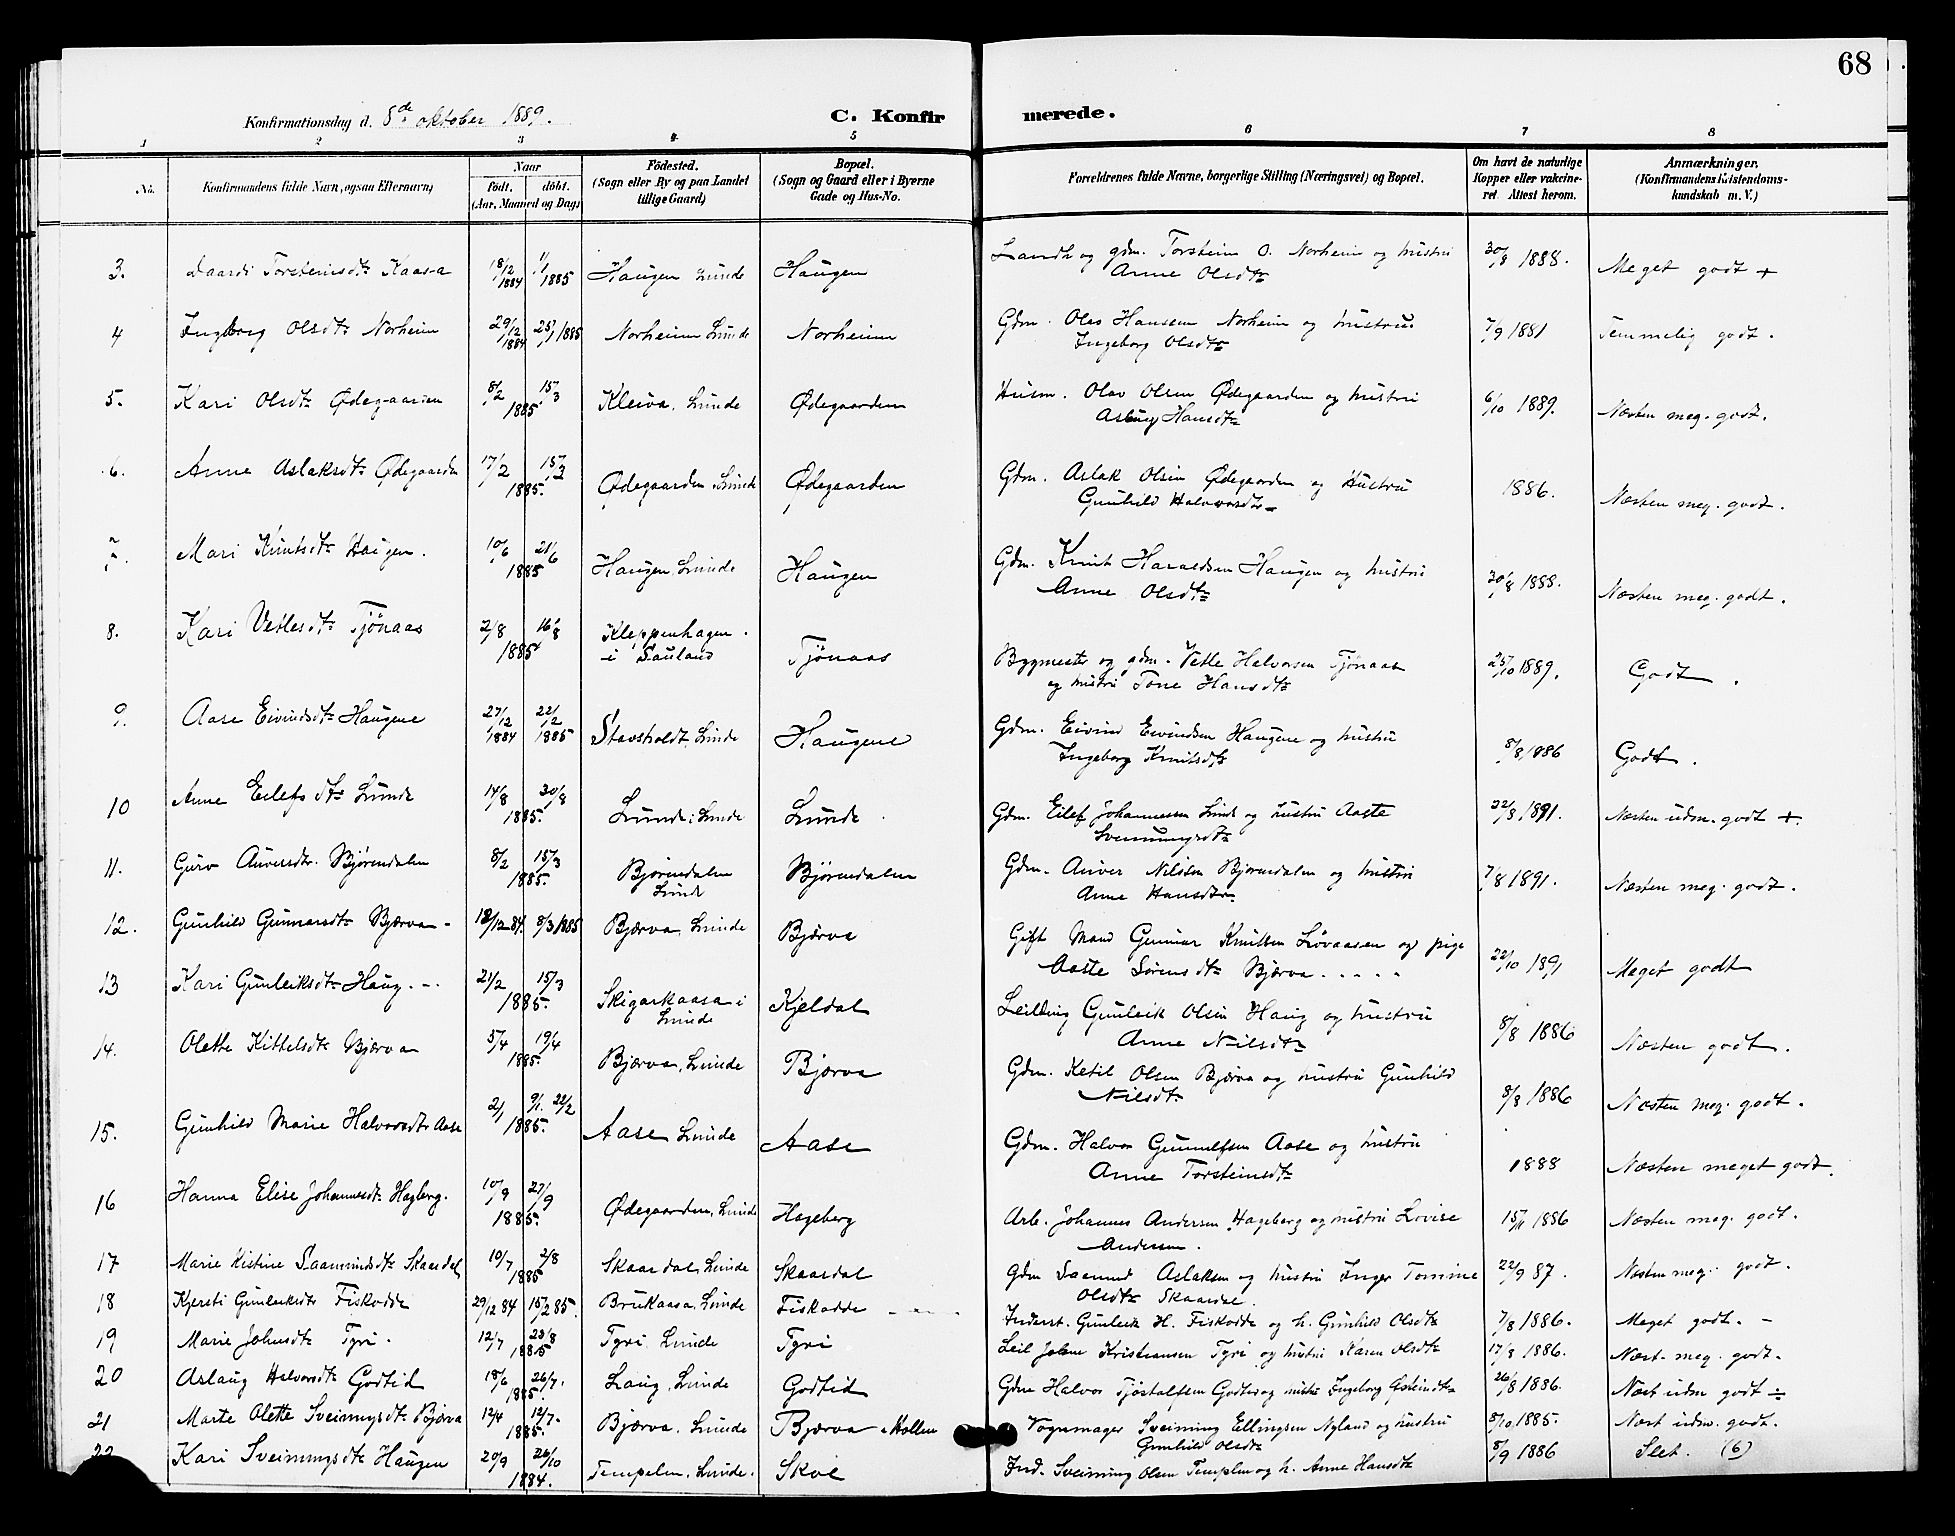 68
Konfirmationsdag d. 8de oktober 1889.
C. Konfirmerede.
1 2 3 4 5 6 7 8
No.
Konfirmandens fulde Navn, ogsaa Efternavn)
Naar
født. døbt.
(Aar, Maaned og Dag)
Fødested.
(Sogn eller By og paa Landet
tillige Gaard)
Bopæl.
(Sogn og Gaard eller i Byerne
Gade og Hus-No.
Forældrenes fulde Navne, borgerlige Stilling (Næringsvei) og Bopæl.
Om havt de naturlige
Kopper eller vakcine-
ret. Attest herom.
Anmærkninger.
(Konfirmandens Kristendoms-
kundskab m. V.)
3. Torsteinsdtr Kaasa 18/12 1884 1/1 1885 Haugen Lunde Haugen Landh og gdm. Torstein O. Norheim og hustru 30/8 1888. Meget godt +
Anne Olsdtr
4 Ingeborg Olsdtr Norheim 29/12 1884 25/1 1885 Norheim Lunde Norheim Gdm. Olav Hansen Norheim og hustru 7/9 1881 Temmelig godt.
Ingeborg Olsdtr
5. Kari Olsdtr Ødegaarden 8/2 15/3 1885 Kleiva, Lunde Ødegaarden Husm. Olav Olsen Ødegaarden og hustru 6/10 1889. Næsten meg. godt.
Aslaug Hansdtr
6. Anne Aslaksdtr Ødegaarden 17/2 15/3 1885. Ødegaarden, Lunde Ødegaarden Gdm. Aslak Olsen Ødegaarden og Hustru 1886. Næsten meg. godt.
Gunhild Halvorsdtr
7. Mari Knutsdtr Haugen. 10/6 21/6 1885 Haugen, Lunde Haugen Gdm. Knut Haraldsen Haugen og hustru 30/8 1888. Næsten meg. godt.
Anne Olsdtr
8. Kari Vetlesdtr Tjönaas 2/8 16/8 1885 Kleppenhagen Tjönaas Bygmester og gdm. Vetle Halvorsen Tjönaas 25/10 1889. Godt.
i Sauland og hustru Tone Hansdtr
9. Aase Eivindsdtr Haugene 27/12 1884 22/2 1885 Stavsholdt Lunde Haugene Gdm. Eivind Eivindsen Haugene og hustru 8/8 1886 Godt.
Ingeborg Knutsdtr
10 Anne Eilefsdtr Lunde 14/8 30/8 1885. Lunde i Lunde Lunde. Gdm. Eilef Johannessen Lunde og hustru Aaste 22/8 1891. Næsten udm. godt +.
Sveinungsdtr
11. Guro Anversdtr. Bjørendalen 8/2 15/3 1885. Bjørendalen Bjørendalen Gdm. Anver Nilsen Bjørendalen og hustru 7/8 1891. Næsten meg. godt.
Lunde Anne Hansdtr
12. Gunhild Gunnarsdtr Bjærva 18/12 84. 8/3 1885 Bjærva, Lunde Bjærva Gift Mand Gunnar Knutsen Løvaasen og pige 22/10 1891 Meget godt
Aaste Sørensdtr Bjærva
13 Kari Gunleiksdtr Haug 21/2 15/3 1885. Skigarkaasa i Kjeldal Leilding Gunleik Olsen Haug og hustru 8/8 1886 Næsten godt.
Lunde Anne Nilsdtr
14. Olette Kittelsdtr Bjærva 5/4 19/4 1885. Bjærva, Lunde Bjærva Gdm. Ketil Olsen Bjærva og hustru Gunhild 8/8 1886 Næsten meg. godt.
Nilsdtr
15. Gunhild Marie Halvorsdtr Aase 2/1 9/1. 22/2 1885. Aase Lunde Aase Gdm. Halvor Gunnulfsen Aase og hustru 1888 Næsten meget godt.
Anne Torsteinsdtr
16 Hanna Elise Johannesdtr Hageberg. 10/9 27/9 1885. Ødegaarden, Lunde Hageberg Arb. Johannes Andersen Hageberg og hustru Lovise 15/11 1886 Næsten meg. godt.
Andersen.
17 Marie Kistine Saamundsdtr Skaardal 10/7 2/8 1885 Skaardal, Lunde Skaardal Gdm Saamund Aslaksen og hustru Inger Tomine 22/9 87. Næsten meg. godt.
Olsdtr Skaardal.
18 Kjersti Gunleiksdtr Fiskodde 29/12 84 15/2 85. Brukaasa, Lunde Fiskodde Inderst. Gunleik H. Fiskodde og h. Gunhild Olsdtr 7/8 1886. Meget godt.
19 Marie Johnsdtr Tyri. 12/7 23/8 1885 Tyri, Lunde Tyri Leil John Kristiansen Tyri og hustru Karen Olsdtr 17/8 1886. Næst. meg. godt.
20 Aslaug Halvorsdtr Godtid 18/6 26/7. 1885. Laug, Lunde Godtid Gdm Halvor Tjostolfsen Godtid og hustr Ingeborg Østeindtr 26/8 1886. Næst udm godt ÷
21 Marte Olette Sveinungsdtr Bjærva 12/4 12/7. 1885. Bjærva, Lunde Bjærva, Hollen Vognmager Sveinung Ellingsen Nyland og hustru 8/10 1885. Næst udm. godt.
Gunhild Olsdtr
22 Kari Sveinungsdtr Haugen 20/9 26/10 1884. Tempelen, Lunde. Skoe Ind. Sveinung Olsen Templen og h. Anne Hansdtr 8/9 1886 Slet. (6)